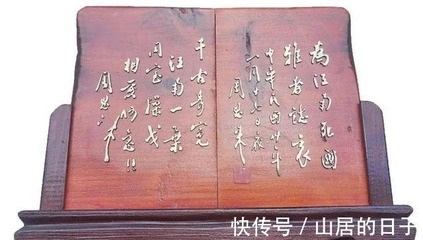 為江南死國
難者誌哀
中華民國卅年
一月十七日夜
周恩来
千古奇冤
江南一葉
同室操戈
相煎何急
周恩来
快传号／山居的日子